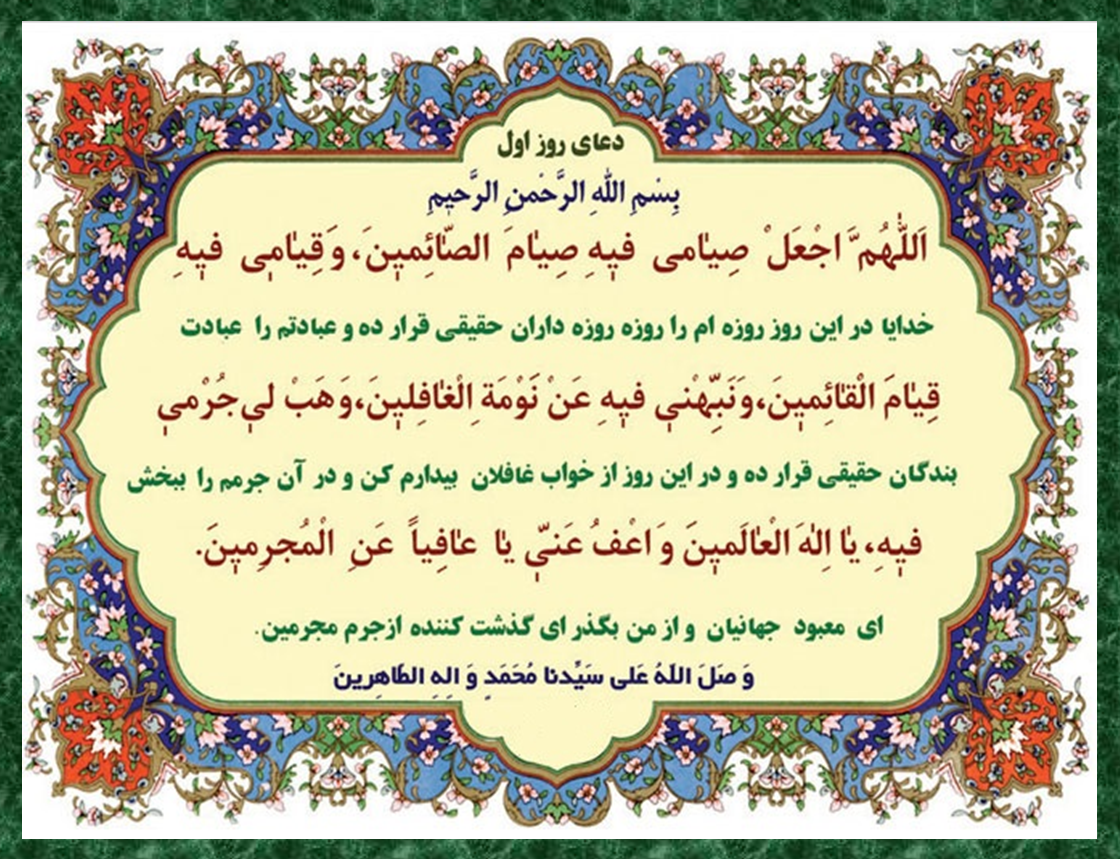 دعای روز اول
بِسْمِ اللهِ الرَّحْمنِ الرَّحیمِ
اَللّٰهُمَّ اجْعَلْ صِیٰامی فیٖهِ صِیٰامَ الصّٰائِمیٖنَ، وَقِیٰامٖی فیٖهِ
خدایا در این روز روزه ام را روزه روزه داران حقیقی قرار ده و عبادتم را عبادت
قِیٰامَ الْقٰائِمیٖنَ،وَنَبِّهْنیٖ فیٖهِ عَنْ نَوْمَةِ الْغٰافِلیٖنَ،وَهَبْ لیٖ جُرْمیٖ
بندگان حقیقی قرار ده و در این روز از خواب غافلان بیدارم کن و در آن جرمم را ببخش
فیٖهِ، یٰا اِلٰهَ الْعٰالَمیٖنَ وَ اعْفُ عَنیّٖ یٰا عٰافِیاً عَنِ الْمُجرِمیٖنَ.
ای معبود جهانیان و از من بگذر ای گذشت کننده ازجرم مجرمین.
وَ صَلَ اللّهُ عَلی سَیِّدنا مُحَمَدٍ وَ الِهِ الطّاهِرینَ